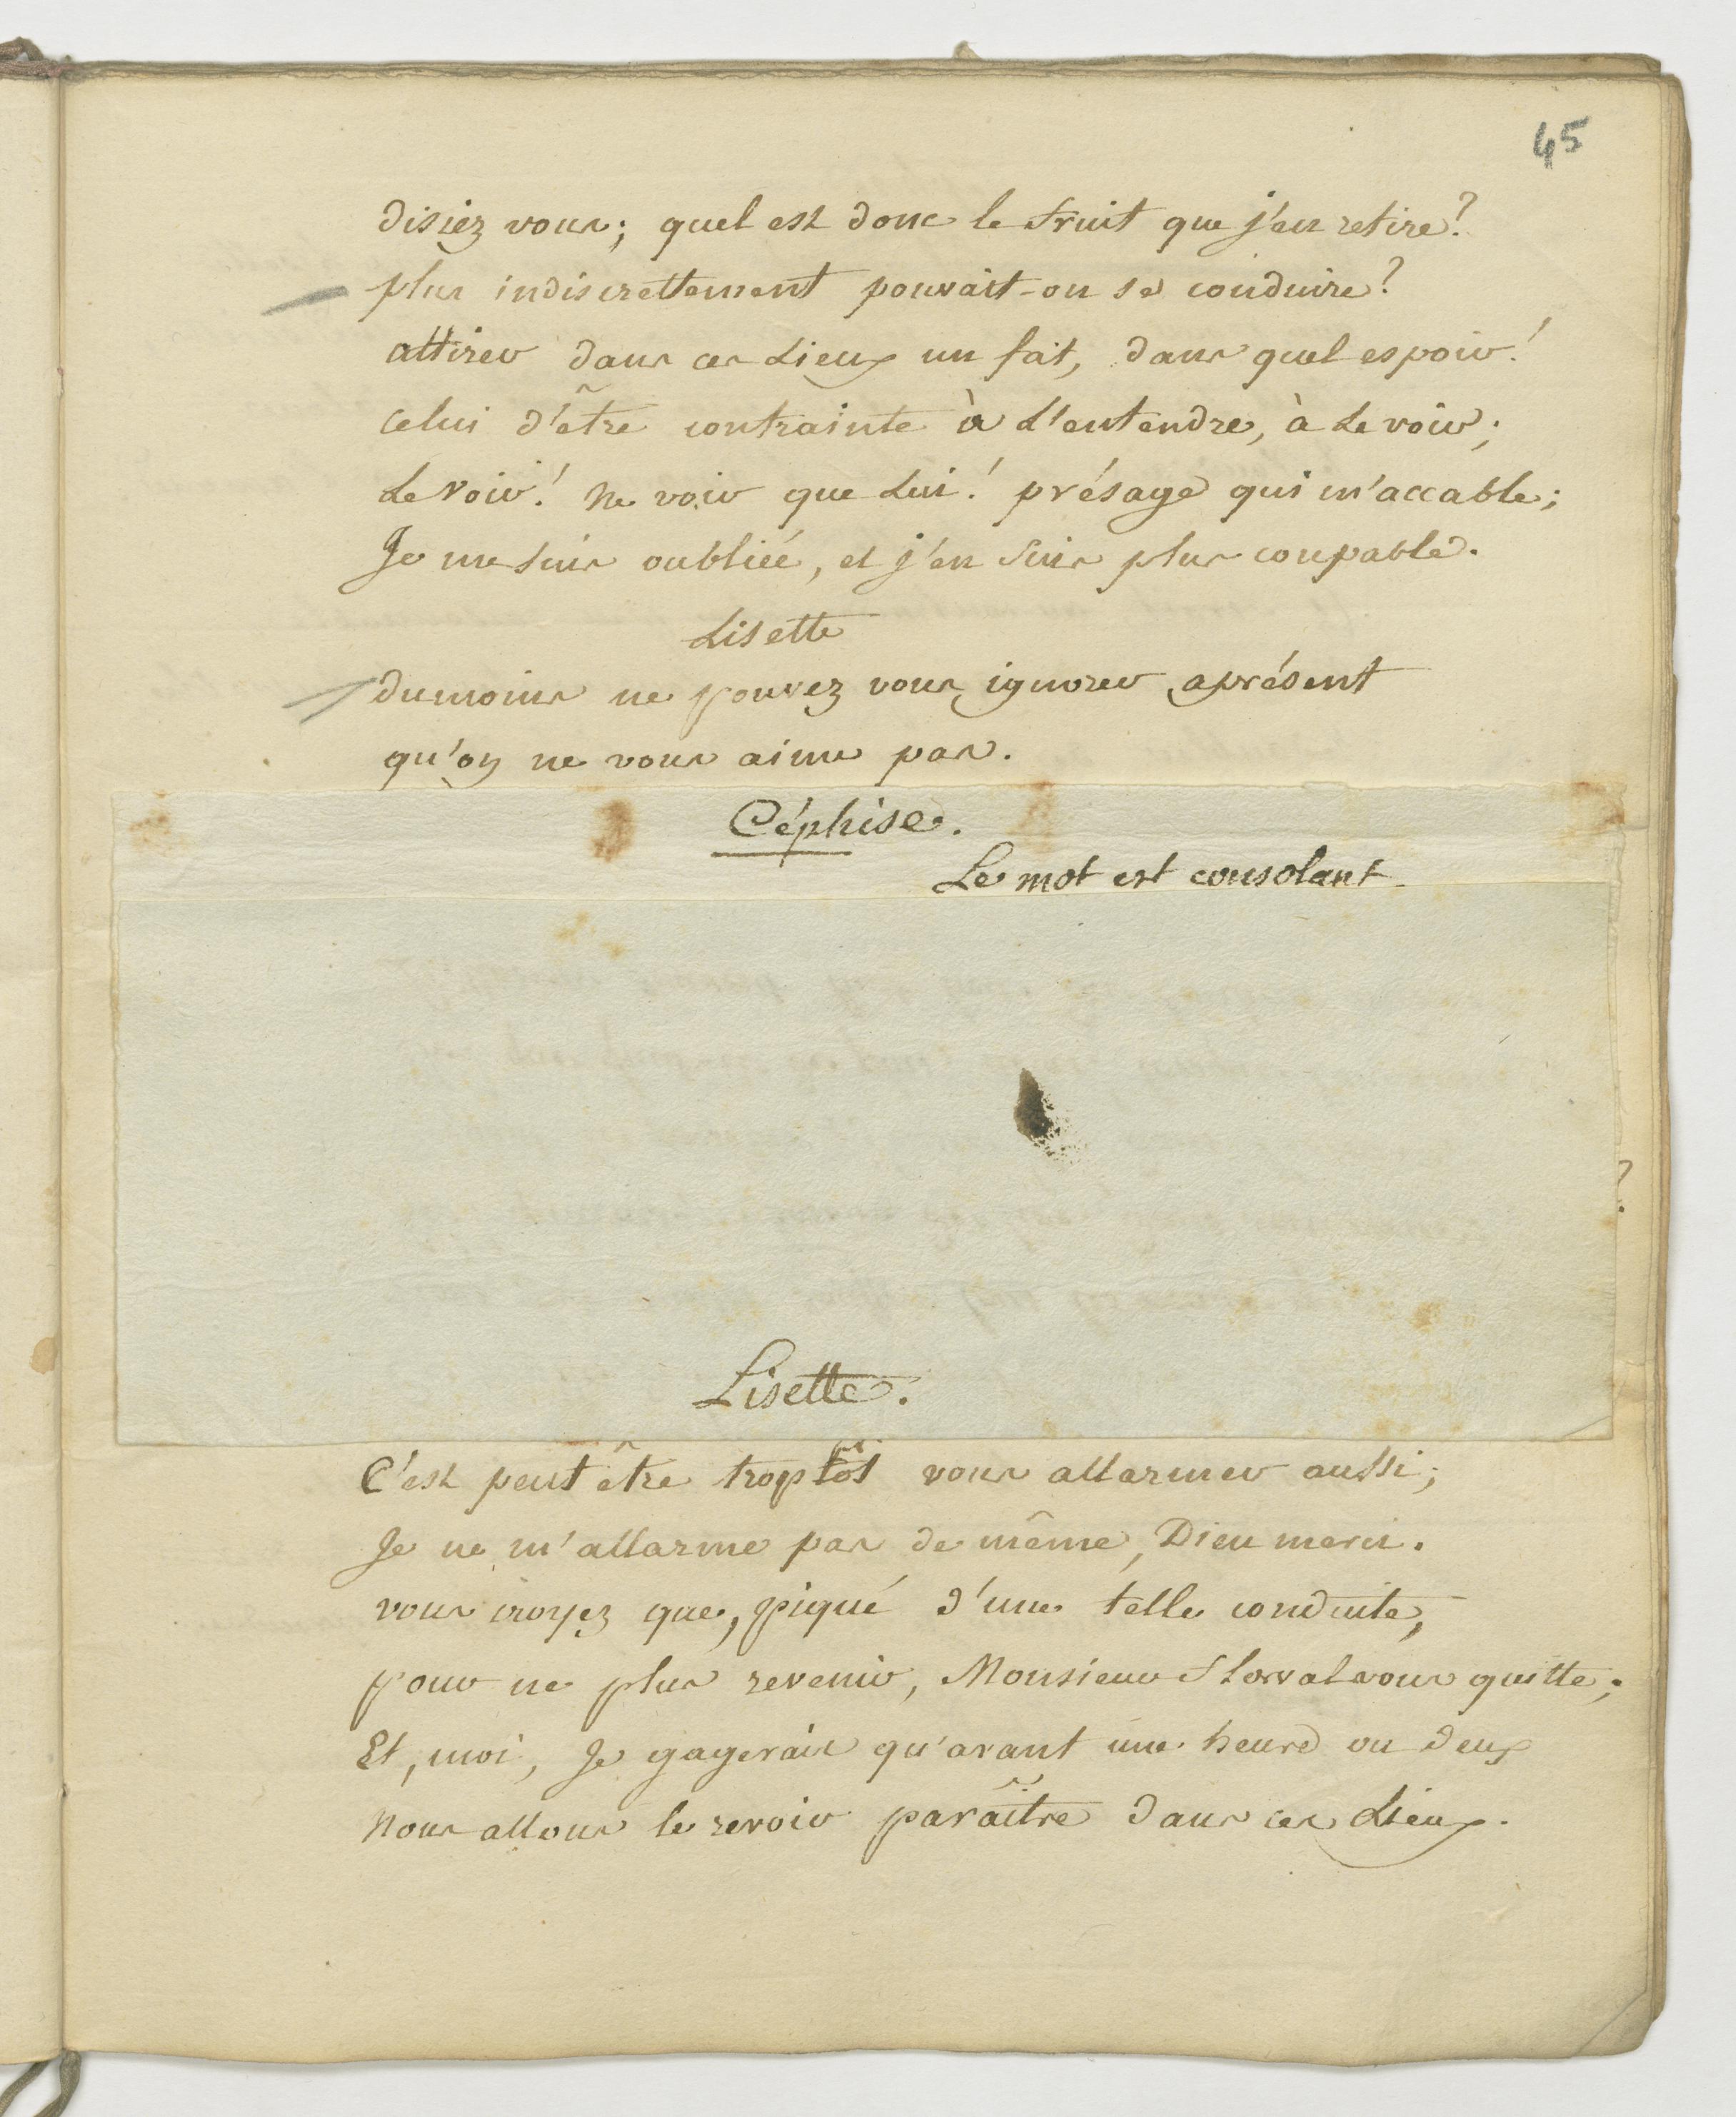 45
disiez vous; quel est donc le fruit que j'en retire?
plus indiscrettement pouvait-on se conduire?
attirer dans ces Lieux un fat, dans quel espoir!
celui d'être contrainte à L'entendre, à Le voir;
Le voir! ne voir que Lui! présage qui m'accable;
Je me suis oubliée, et j'en suis plus coupable.
Lisette
dumoins ne pouvez vous ignorer aprésent
qu'on ne vous aime pas.
Céphise.
Le mot est consolant
?
Lisette.
C'est peut être trop tôt vous allarmer aussi;
Je ne m'allarme pas de même, Dieu merci.
vous croyez que, piqué d'une telle conduite,
pour ne plus revenir, Monsieur Florval vous quitte;
Et, moi, Je gagerais qu'avant une heure ou deux
Nous allons le revoir paraître dans ces Lieux.